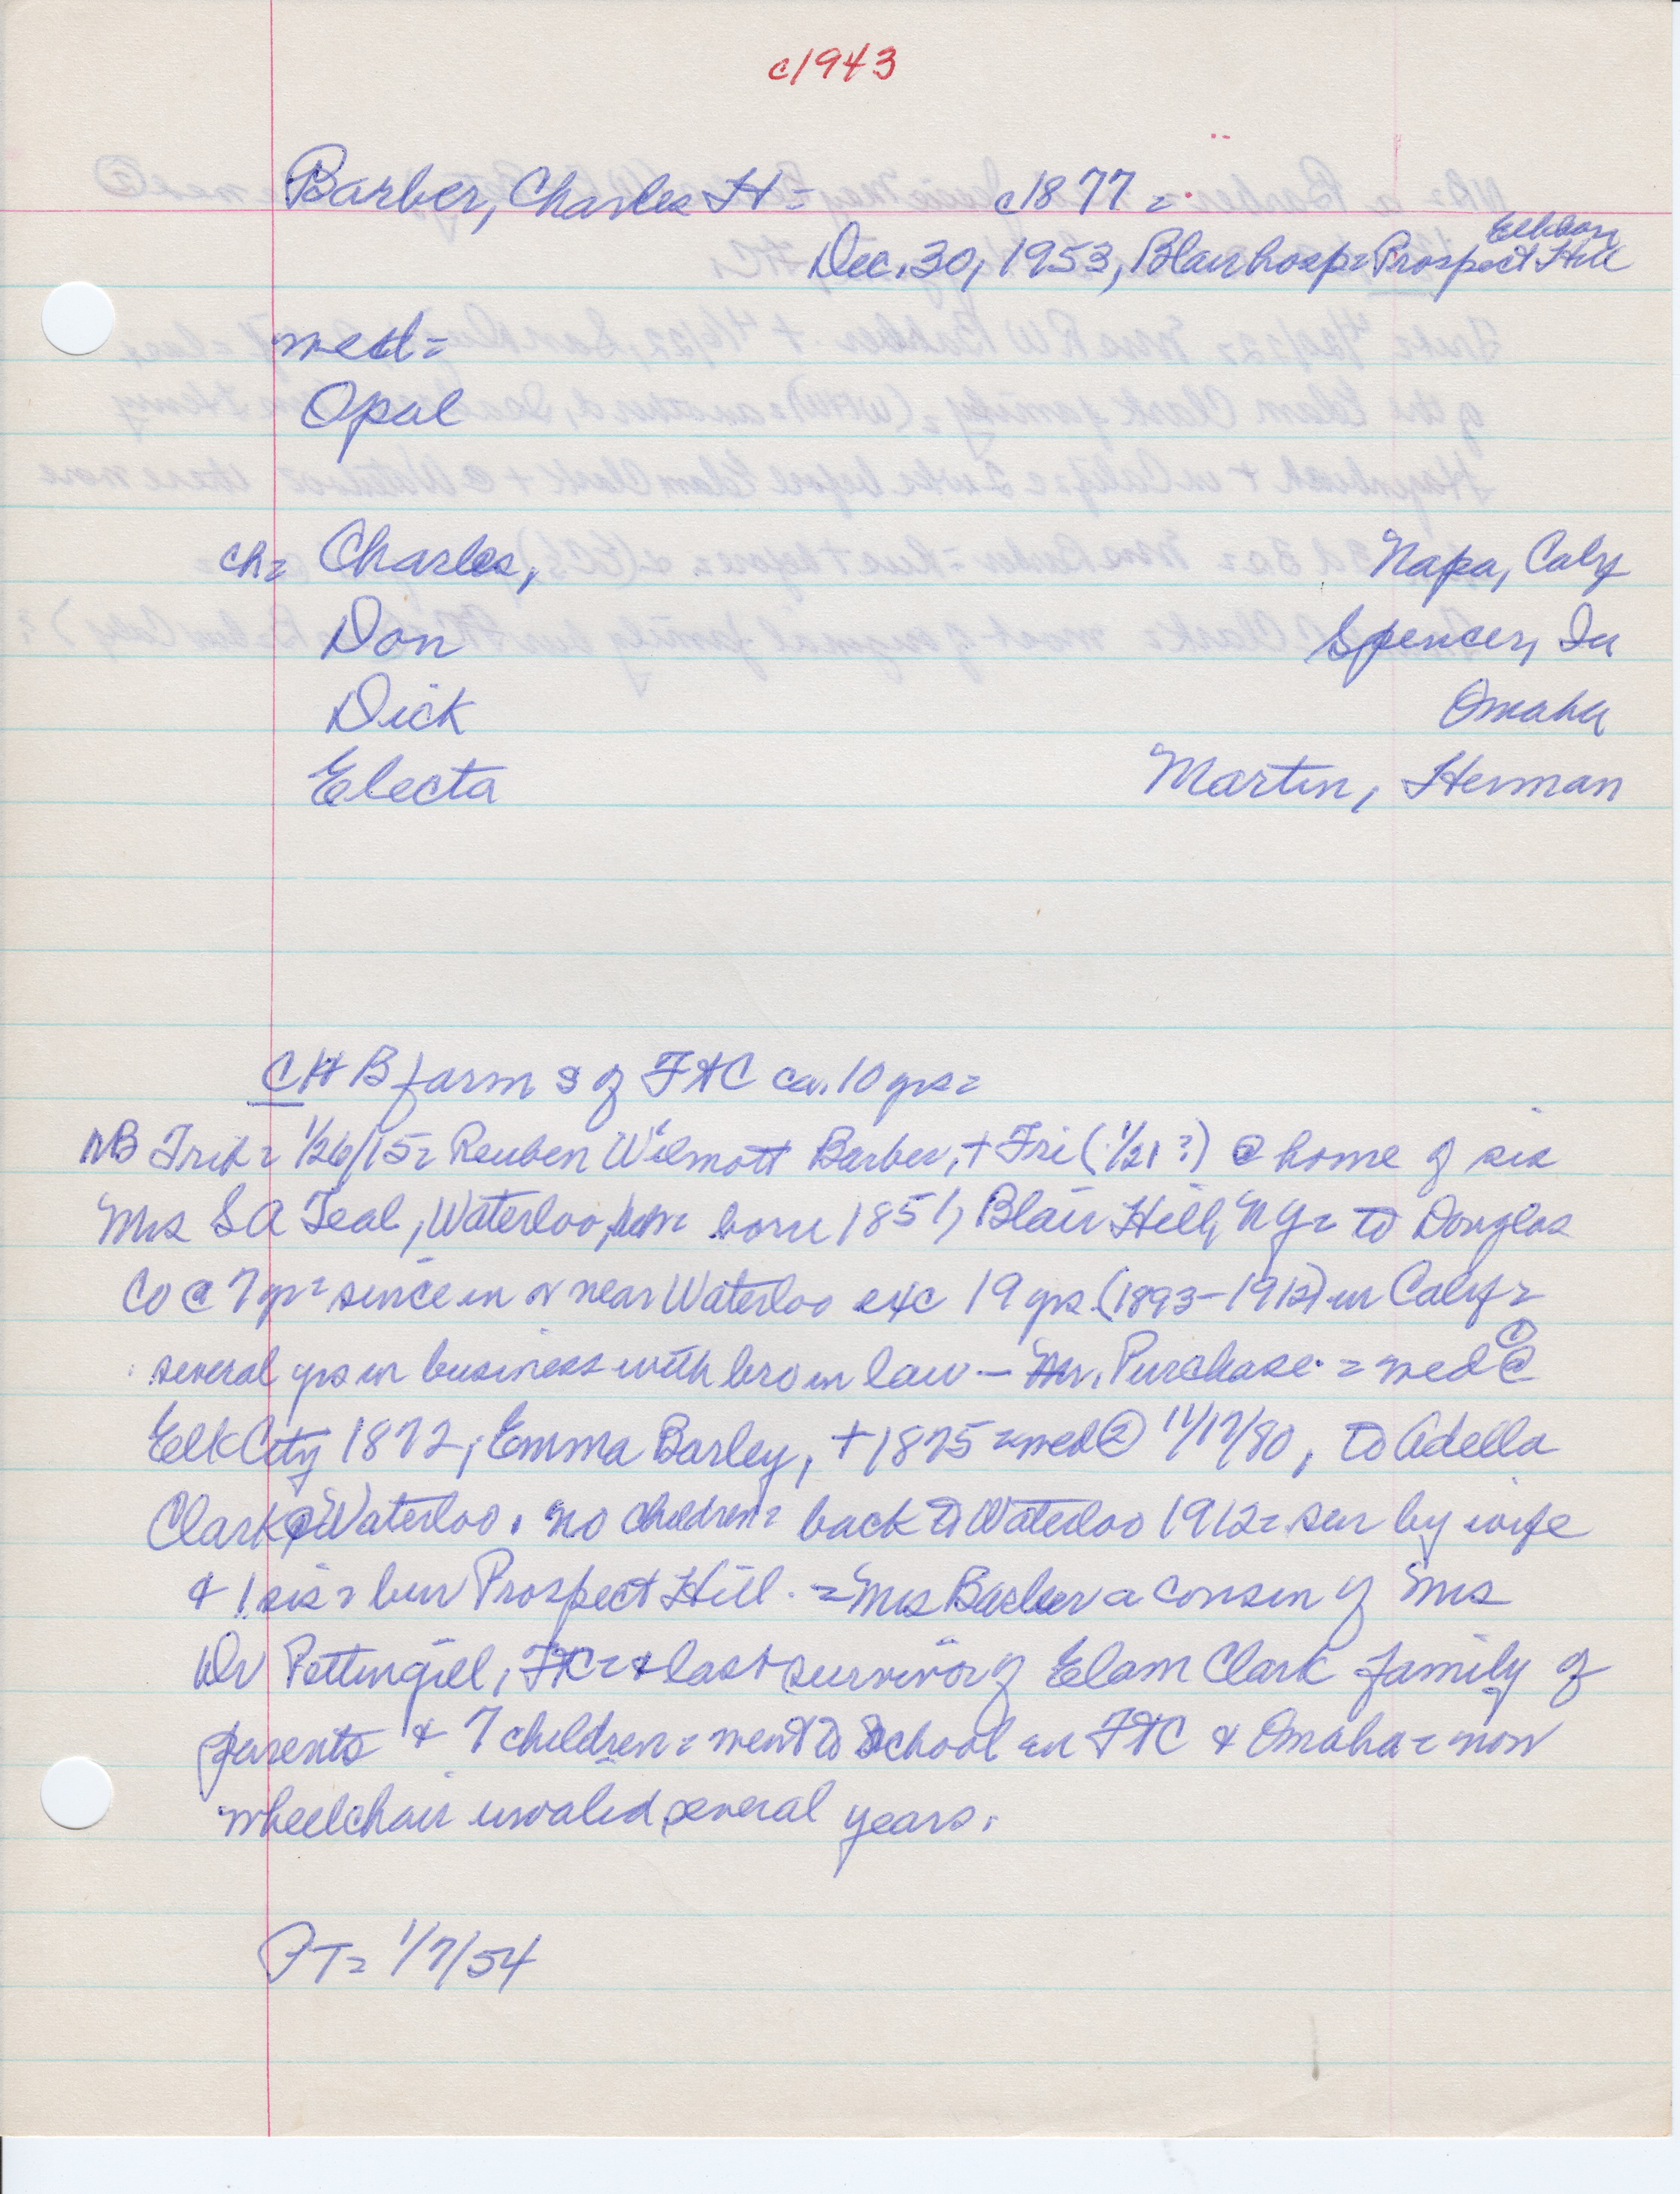 c1943
Barber, Charles H = c1877 =
Elkhorn
Dec. 30, 1953, Blair hosp = Prospect Hill
med =
Opal
ch = Charles, Napa, Calif
Don Spencer, Ia
Dick Omaha
Electa Martin, Herman
CHB farm S of FtC ca. 10 yrs =
NB Trib = 1/26/15 = Reuben Wilmott Barber, + Fri (1/21?) @ home of sis
Mrs S A Teal, Waterloo, born 1851, Blair Hill, NY = to Douglas
Co @ 7 yr = since in or near Waterloo exc 19 yrs (1893-1912) in Calif =
several yrs in business with bro in law - Mr. Purchase = med ① @
Elk City 1872, Emma Barley, + 1875 = med ② 11/17/80, to Adella
Clark @ Waterloo. no children = back to Waterloo 1912 = sur by wife
& 1 sis = bur Prospect Hill. = Mrs Barber a cousin of Mrs
Dr Pettingill, FtC = & last survivor of Elam Clark family of
parents & 7 children = went to school in FtC & Omaha = now
wheelchair invalid several years.
PT = 1/7/54